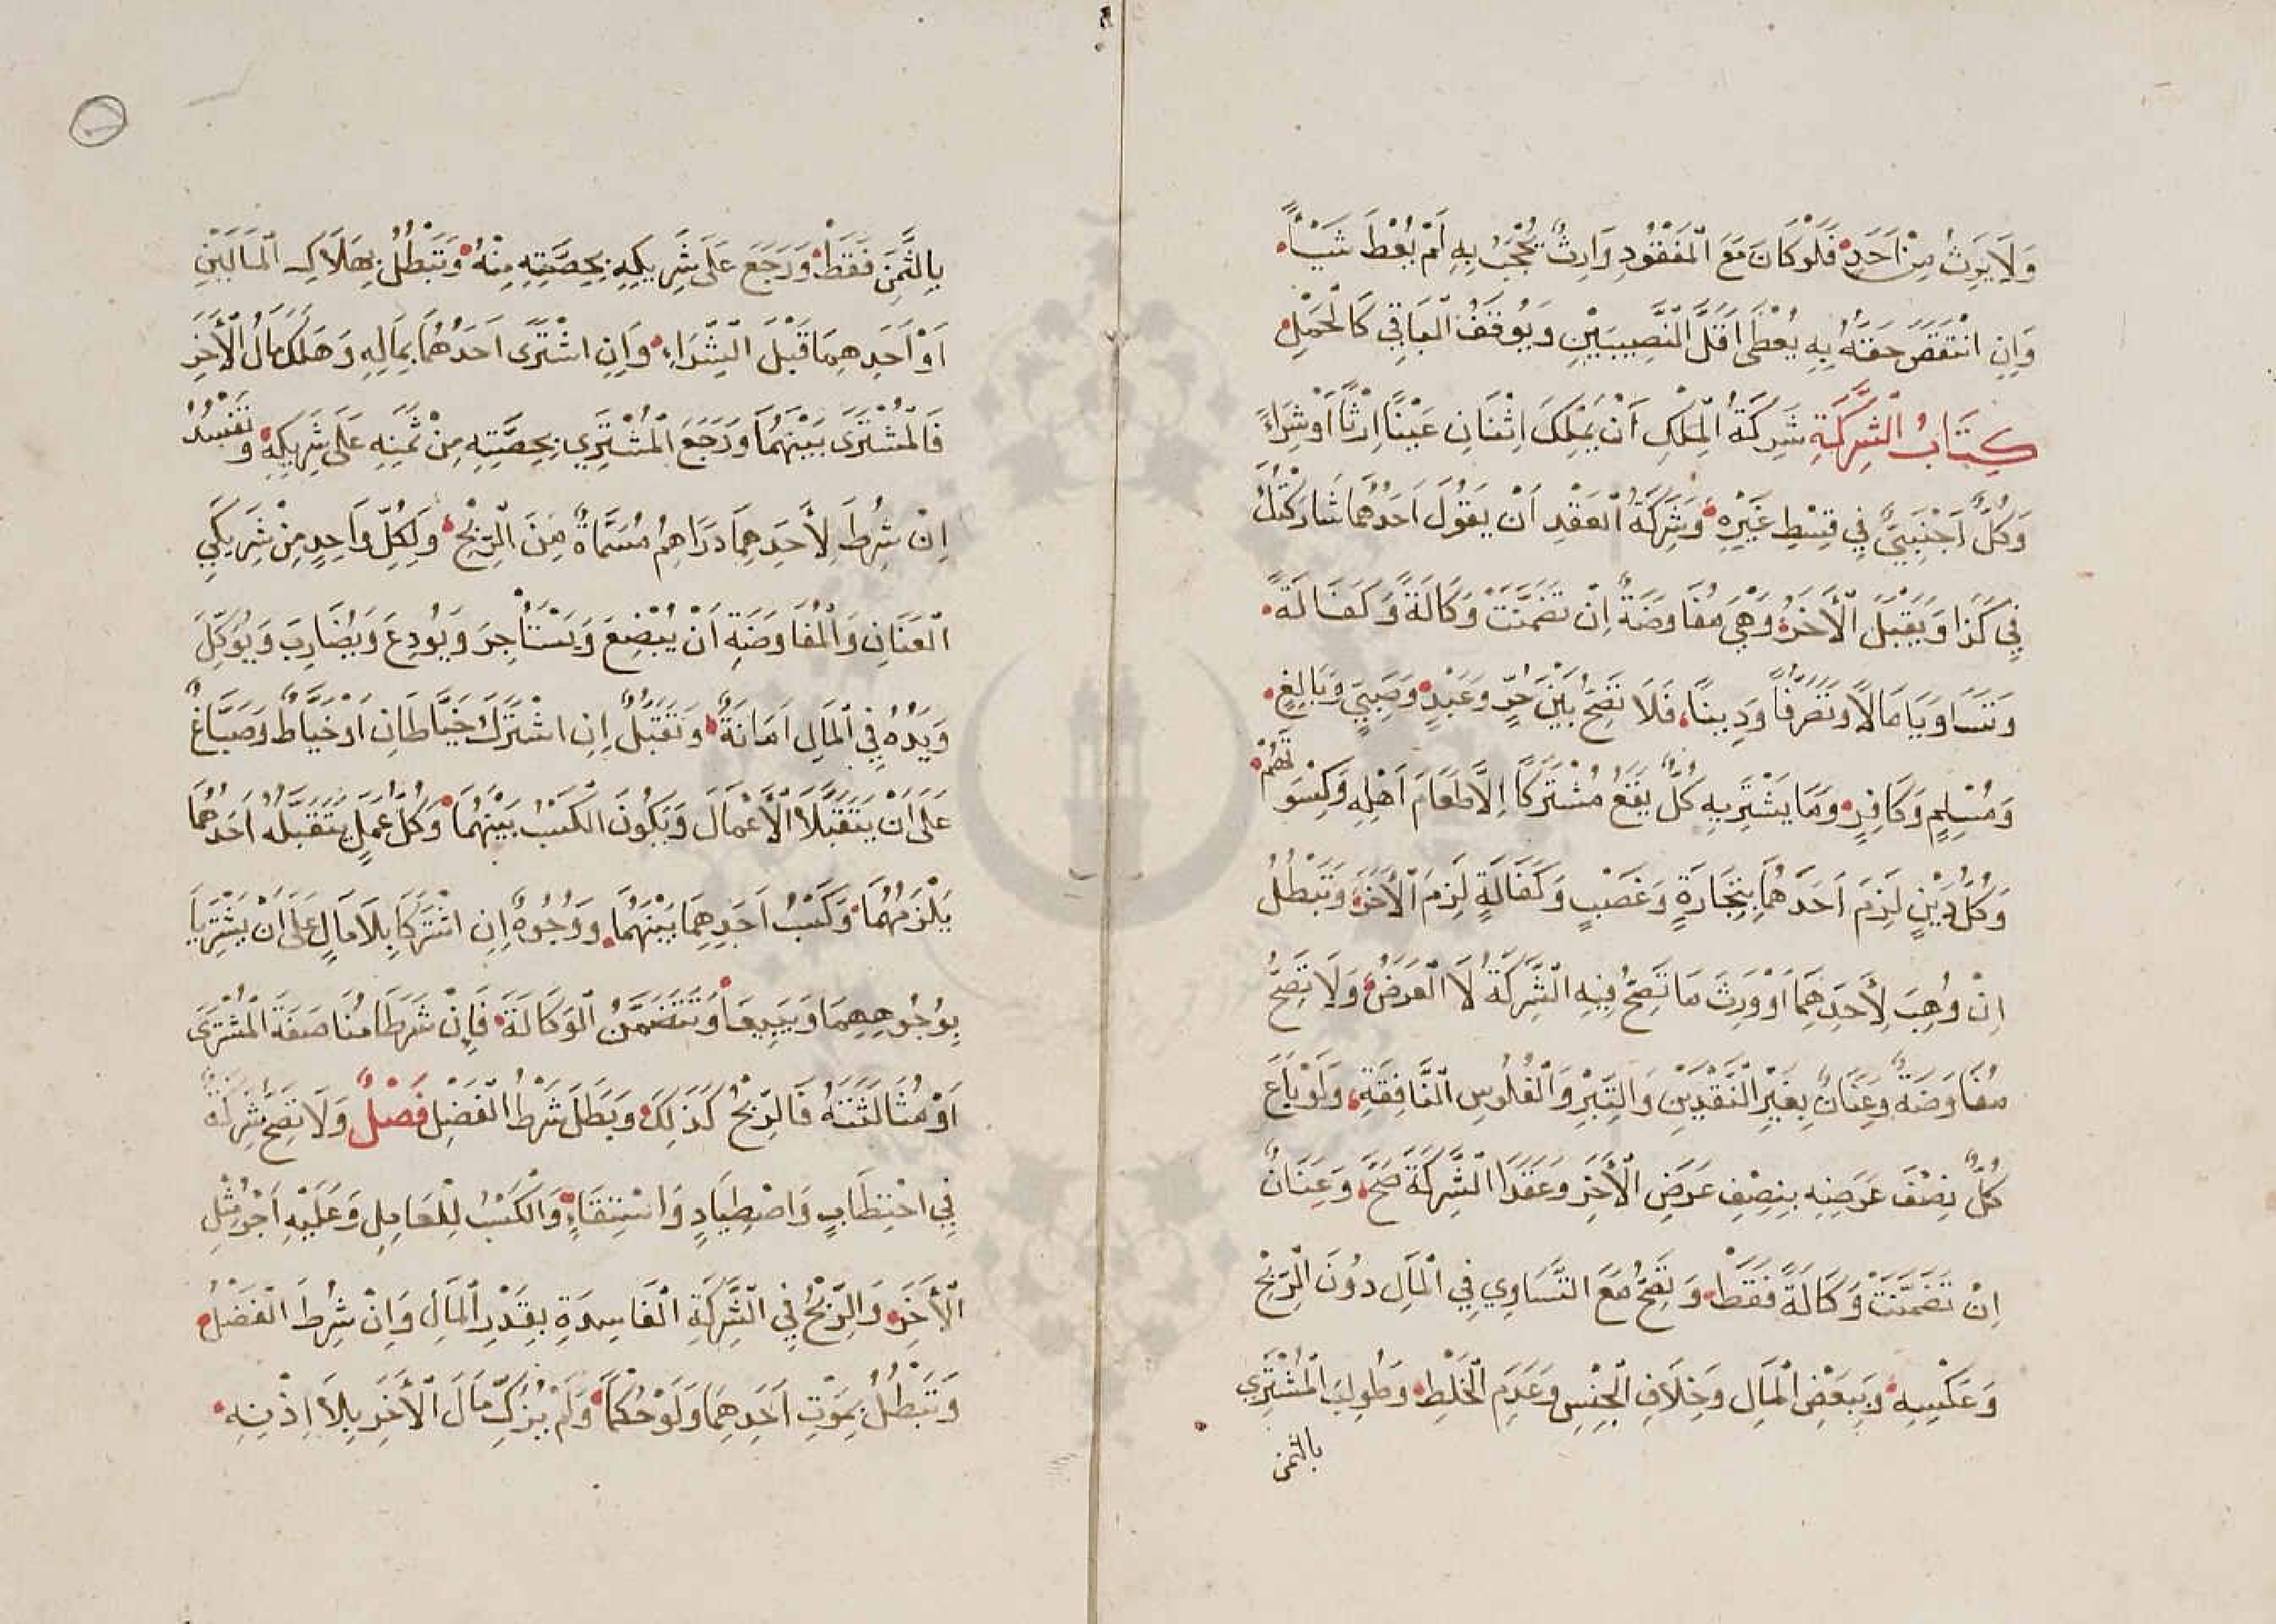 وَلَا يَرِثُ مِنْ اَحَدٍ فَلَوْ كَانَ مَعَ الْمَفْقُودِ وَارِثٌ يُحْجَبُ بِهِ لَمْ يُعْطَ شَيْأً
وَاِنِ انْتَقَصَ حَقُّهُ بِهِ يُعْطَى اَقَلَّ النَّصِيبَيْنِ وَيُوقَفُ الْبَاقِي كَالْحَمْلِ
كِتَابُ الشِّرْكَةِ شَرِكَةُ الْمِلْكِ اَنْ يَمْلِكَ اثْنَانِ عَيْنًا اِرْثًا اَوْ شِرَاءً
وَكُلٌّ اَجْنَبِيٌّ فِي قِسْطِ غَيْرِهِ وَشِرْكَةُ الْعَقْدِ اَنْ يَقُولَ اَحَدُهُمَا شَارَكْتُكَ
فِي كَذَا وَيَقْبَلَ الْأَخَرُ وَهْيَ مُفَاوَضَةٌ اِنْ تَضَمَّنَتْ وَكَالَةً وَكَفَالَةً
وَتَسَاوَيَا مَالًا وَتَصَرُّفًا وَدِينًا فَلَا تَصِحُّ بَيْنَ حُرٍّ وَعَبْدٍ وَصَبِيٍّ وَبَالِغٍ
وَمُسْلِمٍ وَكَافِرٍ وَمَا يَشْتَرِيهِ كُلٌّ يَقَعُ مُشْتَرَكًا اِلَّا طَعَامَ اَهْلِهِ وَكِسْوَتَهُمْ
وَكُلُّ دَيْنٍ لَزِمَ اَحَدَهُمَا بِتِجَارَةٍ وَغَصْبٍ وَكَفَالَةٍ لَزِمَ الْأَخَرَ وَتَبْطُلُ
اِنْ وُهِبَ لِأَحَدِهِمَا اَوْ وَرِثَ مَا تَصِحُّ فِيهِ الشِّرْكَةُ لَا الْعَرَضُ وَلَا تَصِحُّ
مُفَاوَضَةٌ وَعِنَانٌ بِغَيْرِ النَّقْدَيْنِ وَالتِّبْرِ وَالْفُلُوسِ النَّافِقَةِ وَلَوْ بَاعَ
كُلٌّ نِصْفَ عَرَضِهِ بِنِصْفِ عَرَضِ الْأَخَرِ وَعَقَدَا الشِّرْكَةَ صَحَّ وَعِنَانٌ
اِنْ تَضَمَّنَتْ وَكَالَةً فَقَطْ وَتَصِحُّ مَعَ التَّسَاوِي فِي الْمَالِ دُونَ الرِّبْحِ
وَعَكْسِهِ وَبِبَعْضِ الْمَالِ وَخِلَافِ الْجِنْسِ وَعَدَمِ الْخَلْطِ وَطُولِبَ الْمُشْتَرِي
بالثمن
بِالثَّمَنِ فَقَطْ وَرَجَعَ عَلَى شَرِيكِهِ بِحِصَّتِهِ مِنْهُ وَتَبْطُلُ بِهَلَاكِ الْمَالَيْنِ
اَوْ اَحَدِهِمَا قَبْلَ الشِّرَاءِ وَاِنِ اشْتَرَى اَحَدُهُمَا بِمَالِهِ وَهَلَكَ مَالُ الْأَخَرِ
فَالْمُشْتَرَى بَيْنَهُمَا وَرَجَعَ الْمُشْتَرِي بِحِصَّتِهِ مِنْ ثَمَنِهِ عَلَى شَرِيكِهِ وَتَفْسُدُ
اِنْ شُرِطَ لِأَحَدِهِمَا دَرَاهِمُ مُسَمَّاةٌ مِنَ الرِّبْحِ وَلِكُلِّ وَاحِدٍ مِنْ شَرِيكَيِ
الْعَنَانِ وَالْمُفَاوَضَةِ اَنْ يُبْضِعَ وَيَسْتَأْجِرَ وَيُودِعَ وَيُضَارِبَ وَيُوَكِّلَ
وَيَدُهُ فِي الْمَالِ اَمَانَةٌ وَتَقَبُّلٌ اِنِ اشْتَرَكَ خَيَّاطَانِ اَوْ خَيَّاطٌ وَصَبَّاغٌ
عَلَى اَنْ يَتَقَبَّلَا الْأَعْمَالَ وَيَكُونَ الْكَسْبُ بَيْنَهُمَا وَكُلُّ عَمَلٍ يَتَقَبَّلُهُ اَحَدُهُمَا
يَلْزَمُهُمَا وَكَسْبُ اَحَدِهِمَا بَيْنَهُمَا وَوُجُوهٌ اِنِ اشْتَرَكَا بِلَا مَالٍ عَلَى اَنْ يَشْتَرِيَا
بِوُجُوهِهِمَا وَيَبِيعَا وَتَتَضَمَّنُ الْوَكَالَةَ فَاِنْ شَرَطَا مُنَاصَفَةَ الْمُشْتَرَى
اَوْ مُثَالَثَتَهُ فَالرِّبْحُ كَذَلِكَ وَبَطَلَ شَرْطُ الْفَضْلِ فَصْلٌ وَلَا تَصِحُّ شِرْكَةٌ
فِي احْتِطَابٍ وَاصْطِيَادٍ وَاسْتِقَاءٍ وَالْكَسْبُ لِلْعَامِلِ وَعَلَيْهِ اَجْرُ مِثْلِ
الْأَخَرِ وَالرِّبْحُ فِي الشِّرْكَةِ الْفَاسِدَةِ بِقَدْرِ الْمَالِ وَاِنْ شُرِطَ الْفَضْلُ
وَتَبْطُلُ بِمَوْتِ اَحَدِهِمَا وَلَوْ حُكْمًا وَلَمْ يُزَكِّ مَالَ الْأَخَرِ بِلَا اِذْنِهِ